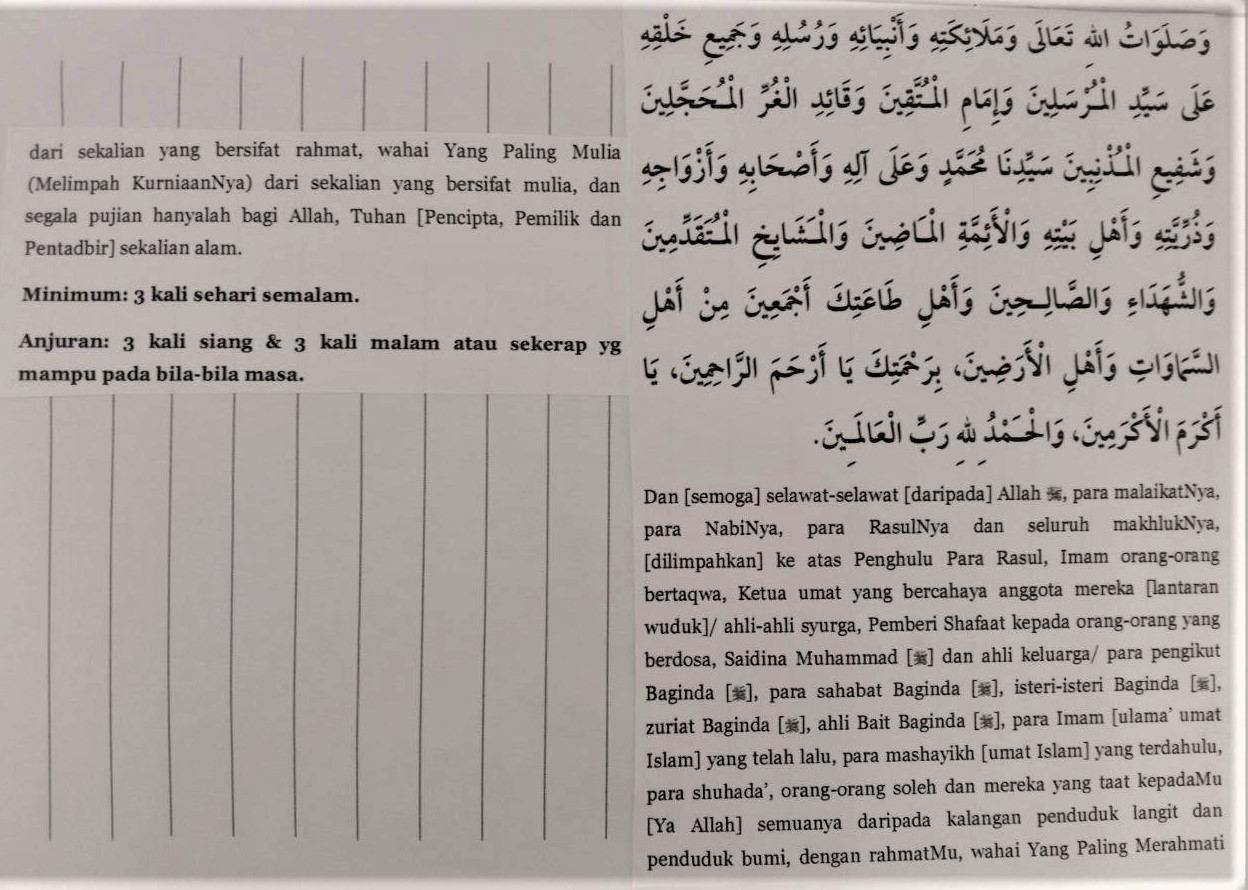 وَصَلَوَاتُ اللهِ تَعَالَى وَمَلَائِكَتِهِ وَأَنْبِيَائِهِ وَرُسُلِهِ وَجَمِيعِ خَلْقِهِ
عَلَى سَيِّدِ الْمُرْسَلِينَ وَإِمَامِ الْمُتَّقِينَ وَقَائِدِ الْغُرِّ الْمُحَجَّلِينَ
وَشَفِيعِ الْمُذْنِبِينَ سَيِّدِنَا مُحَمَّدٍ وَعَلَى آلِهِ وَأَصْحَابِهِ وَأَزْوَاجِهِ
وَذُرِّيَّتِهِ وَأَهْلِ بَيْتِهِ وَالْأَئِمَّةِ الْمَاضِينَ وَالْمَشَايِخِ الْمُتَقَدِّمِينَ
وَالشُّهَدَاءِ وَالصَّالِحِينَ وَأَهْلِ طَاعَتِكَ أَجْمَعِينَ مِنْ أَهْلِ
السَّمَاوَاتِ وَأَهْلِ الْأَرَضِينَ، بِرَحْمَتِكَ يَا أَرْحَمَ الرَّاحِمِينَ، يَا
أَكْرَمَ الْأَكْرَمِينَ، وَالْحَمْدُ لِلهِ رَبِّ الْعَالَمِينَ.
Dan [semoga] selawat-selawat [daripada] Allah ﷻ, para malaikatNya,
para NabiNya, para RasulNya dan seluruh makhlukNya,
[dilimpahkan] ke atas Penghulu Para Rasul, Imam orang-orang
bertaqwa, Ketua umat yang bercahaya anggota mereka [lantaran
wuduk]/ ahli-ahli syurga, Pemberi Shafaat kepada orang-orang yang
berdosa, Saidina Muhammad [ﷺ] dan ahli keluarga/ para pengikut
Baginda [ﷺ], para sahabat Baginda [ﷺ], isteri-isteri Baginda [ﷺ],
zuriat Baginda [ﷺ], ahli Bait Baginda [ﷺ], para Imam [ulama’ umat
Islam] yang telah lalu, para mashayikh [umat Islam] yang terdahulu,
para shuhada’, orang-orang soleh dan mereka yang taat kepadaMu
[Ya Allah] semuanya daripada kalangan penduduk langit dan
penduduk bumi, dengan rahmatMu, wahai Yang Paling Merahmati
dari sekalian yang bersifat rahmat, wahai Yang Paling Mulia
(Melimpah KurniaanNya) dari sekalian yang bersifat mulia, dan
segala pujian hanyalah bagi Allah, Tuhan [Pencipta, Pemilik dan
Pentadbir] sekalian alam.
Minimum: 3 kali sehari semalam.
Anjuran: 3 kali siang & 3 kali malam atau sekerap yg
mampu pada bila-bila masa.